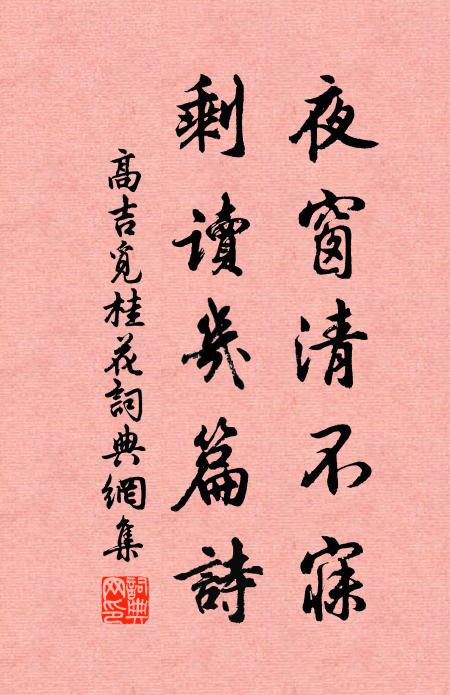 夜窗清不寐
剩讀幾篇詩
高吉覓桂花詞典網集
詞典網印